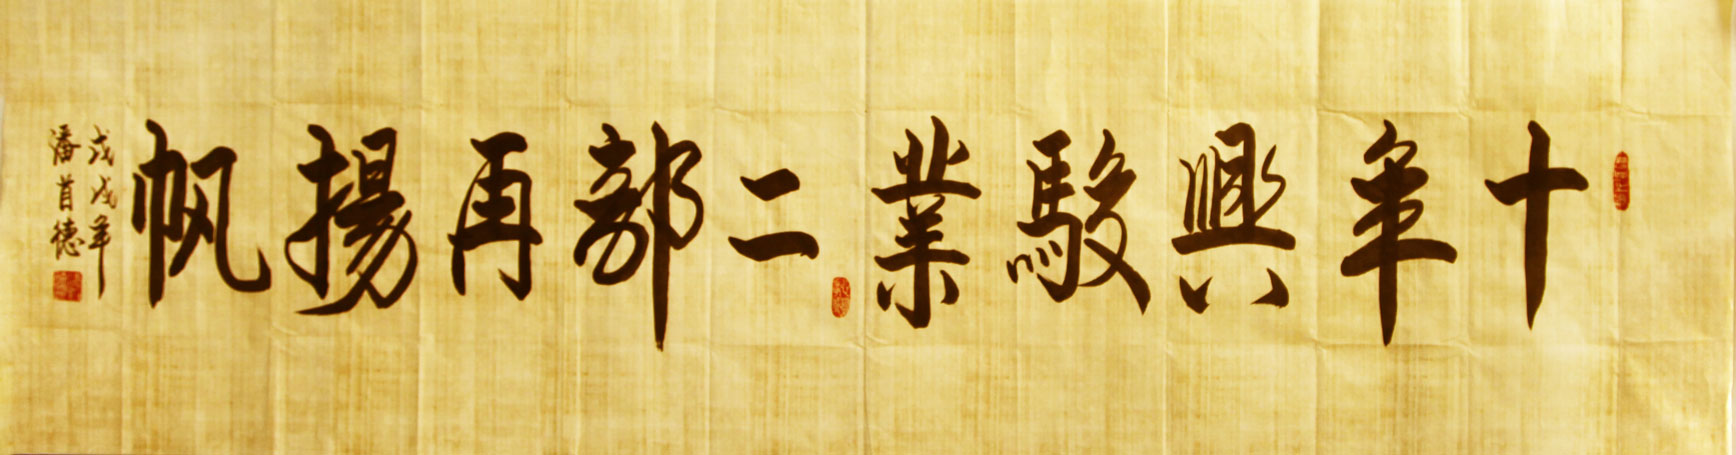 十年興駿業二部再揚帆
戊戌年
潘首德